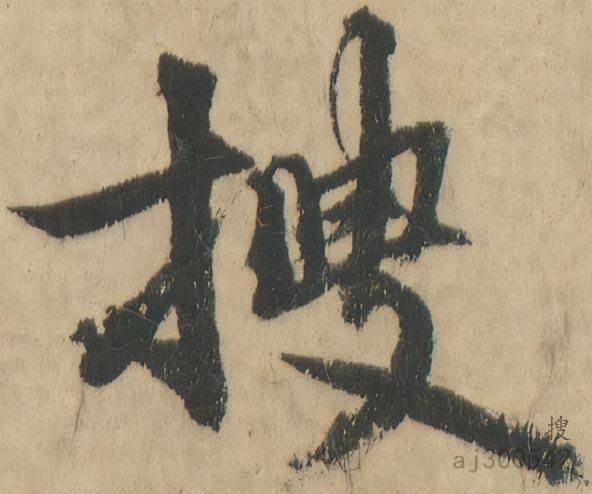 搜
搜
aj300542